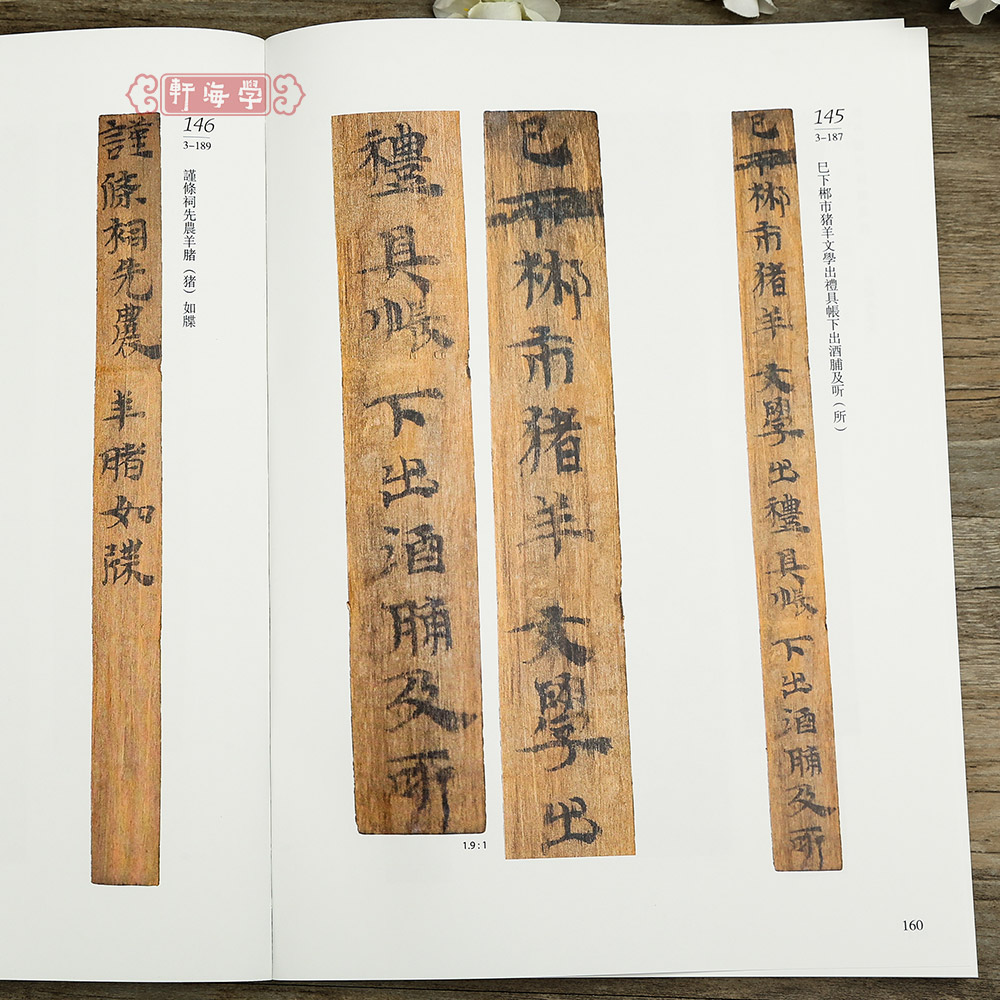 軒海學
145
3-187
巳下郴市猪羊文學出禮具帳下出酒脯及听（所）
巳下郴市猪羊文學出禮具帳下出酒脯及听
巳下郴市猪羊文學出
禮具帳下出酒脯及听
1.9 : 1
146
3-189
謹條祠先農羊䐗（猪）如牒
謹條祠先農羊䐗如牒
160